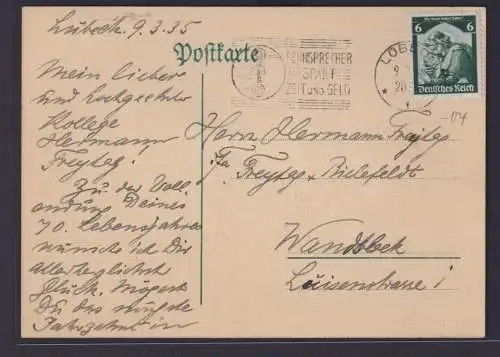 Lübeck. 9.3.35
Postkarte
Mein lieber
und hochgeehrter
Kollege
Hermann
Freytag.
Zu der Voll-
endung Deines
70. Lebensjahres
wünsche ich Dir
allerherzlichst
Glück. Mögest
Du das neunte
Jahrzehnt in
FERNSPRECHER
SPART
ZEIT UND GELD
LÜBE
6 6
Deutsches Reich
-04
Herrn Hermann Freytag
Fa. Freytag + Bielefeldt
Wandsbek
Luisenstrasse 1